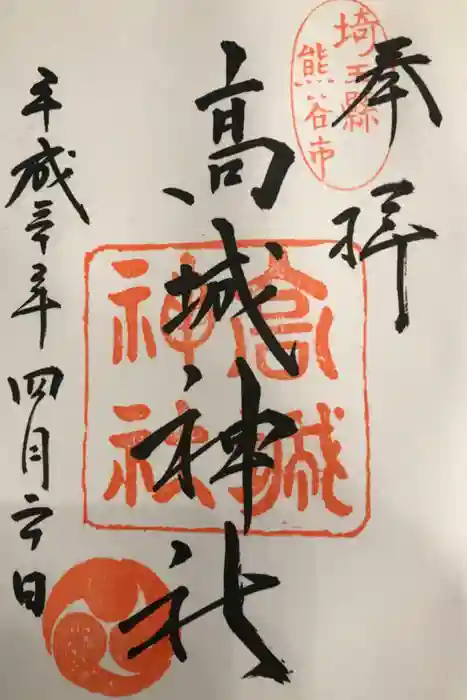 奉拝
埼玉縣
熊谷市
高城神社
高城
神社
平成三十年四月日